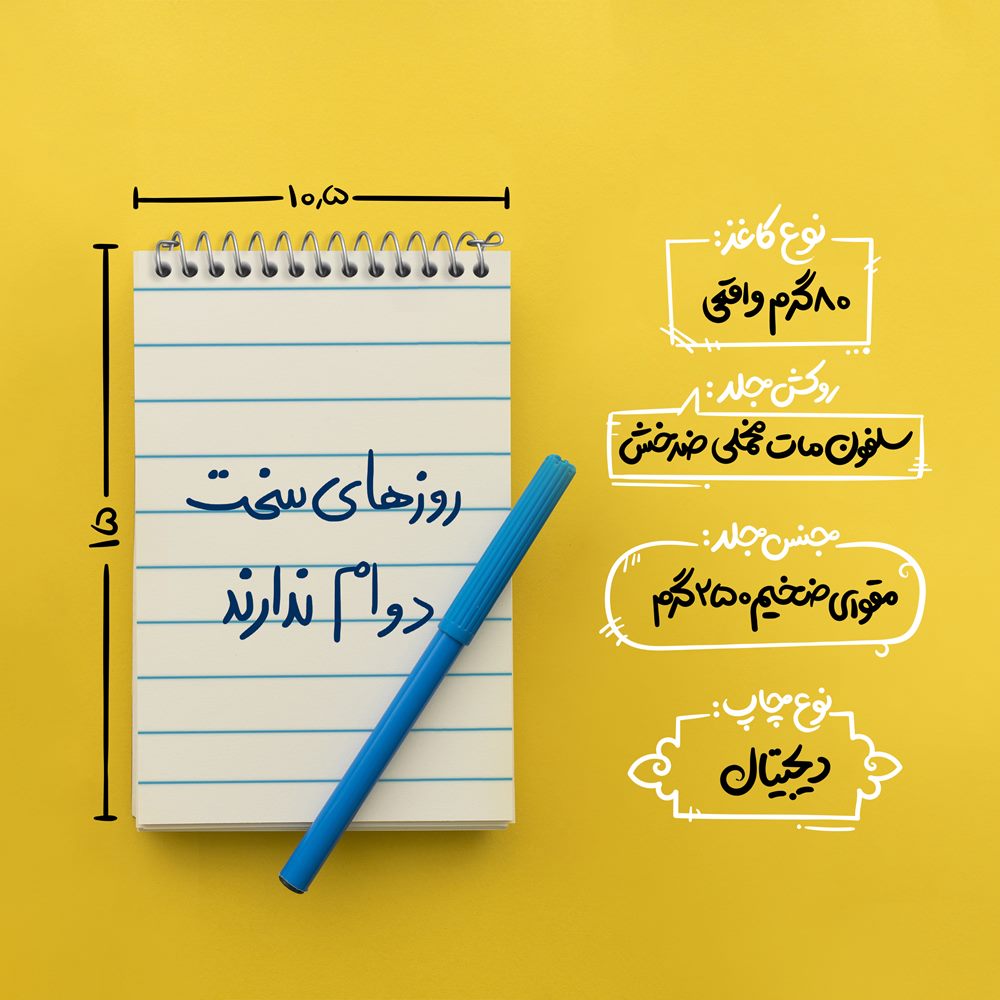 ۱۰٫۵
۱۵
روزهای سخت
دوام ندارند
نوع کاغذ:
۸۰گرم واقعی
روکش جلد:
سلفون مات مخملی ضدخش
جنس جلد:
مقوای ضخیم ۲۵۰گرم
نوع چاپ:
دیجیتال